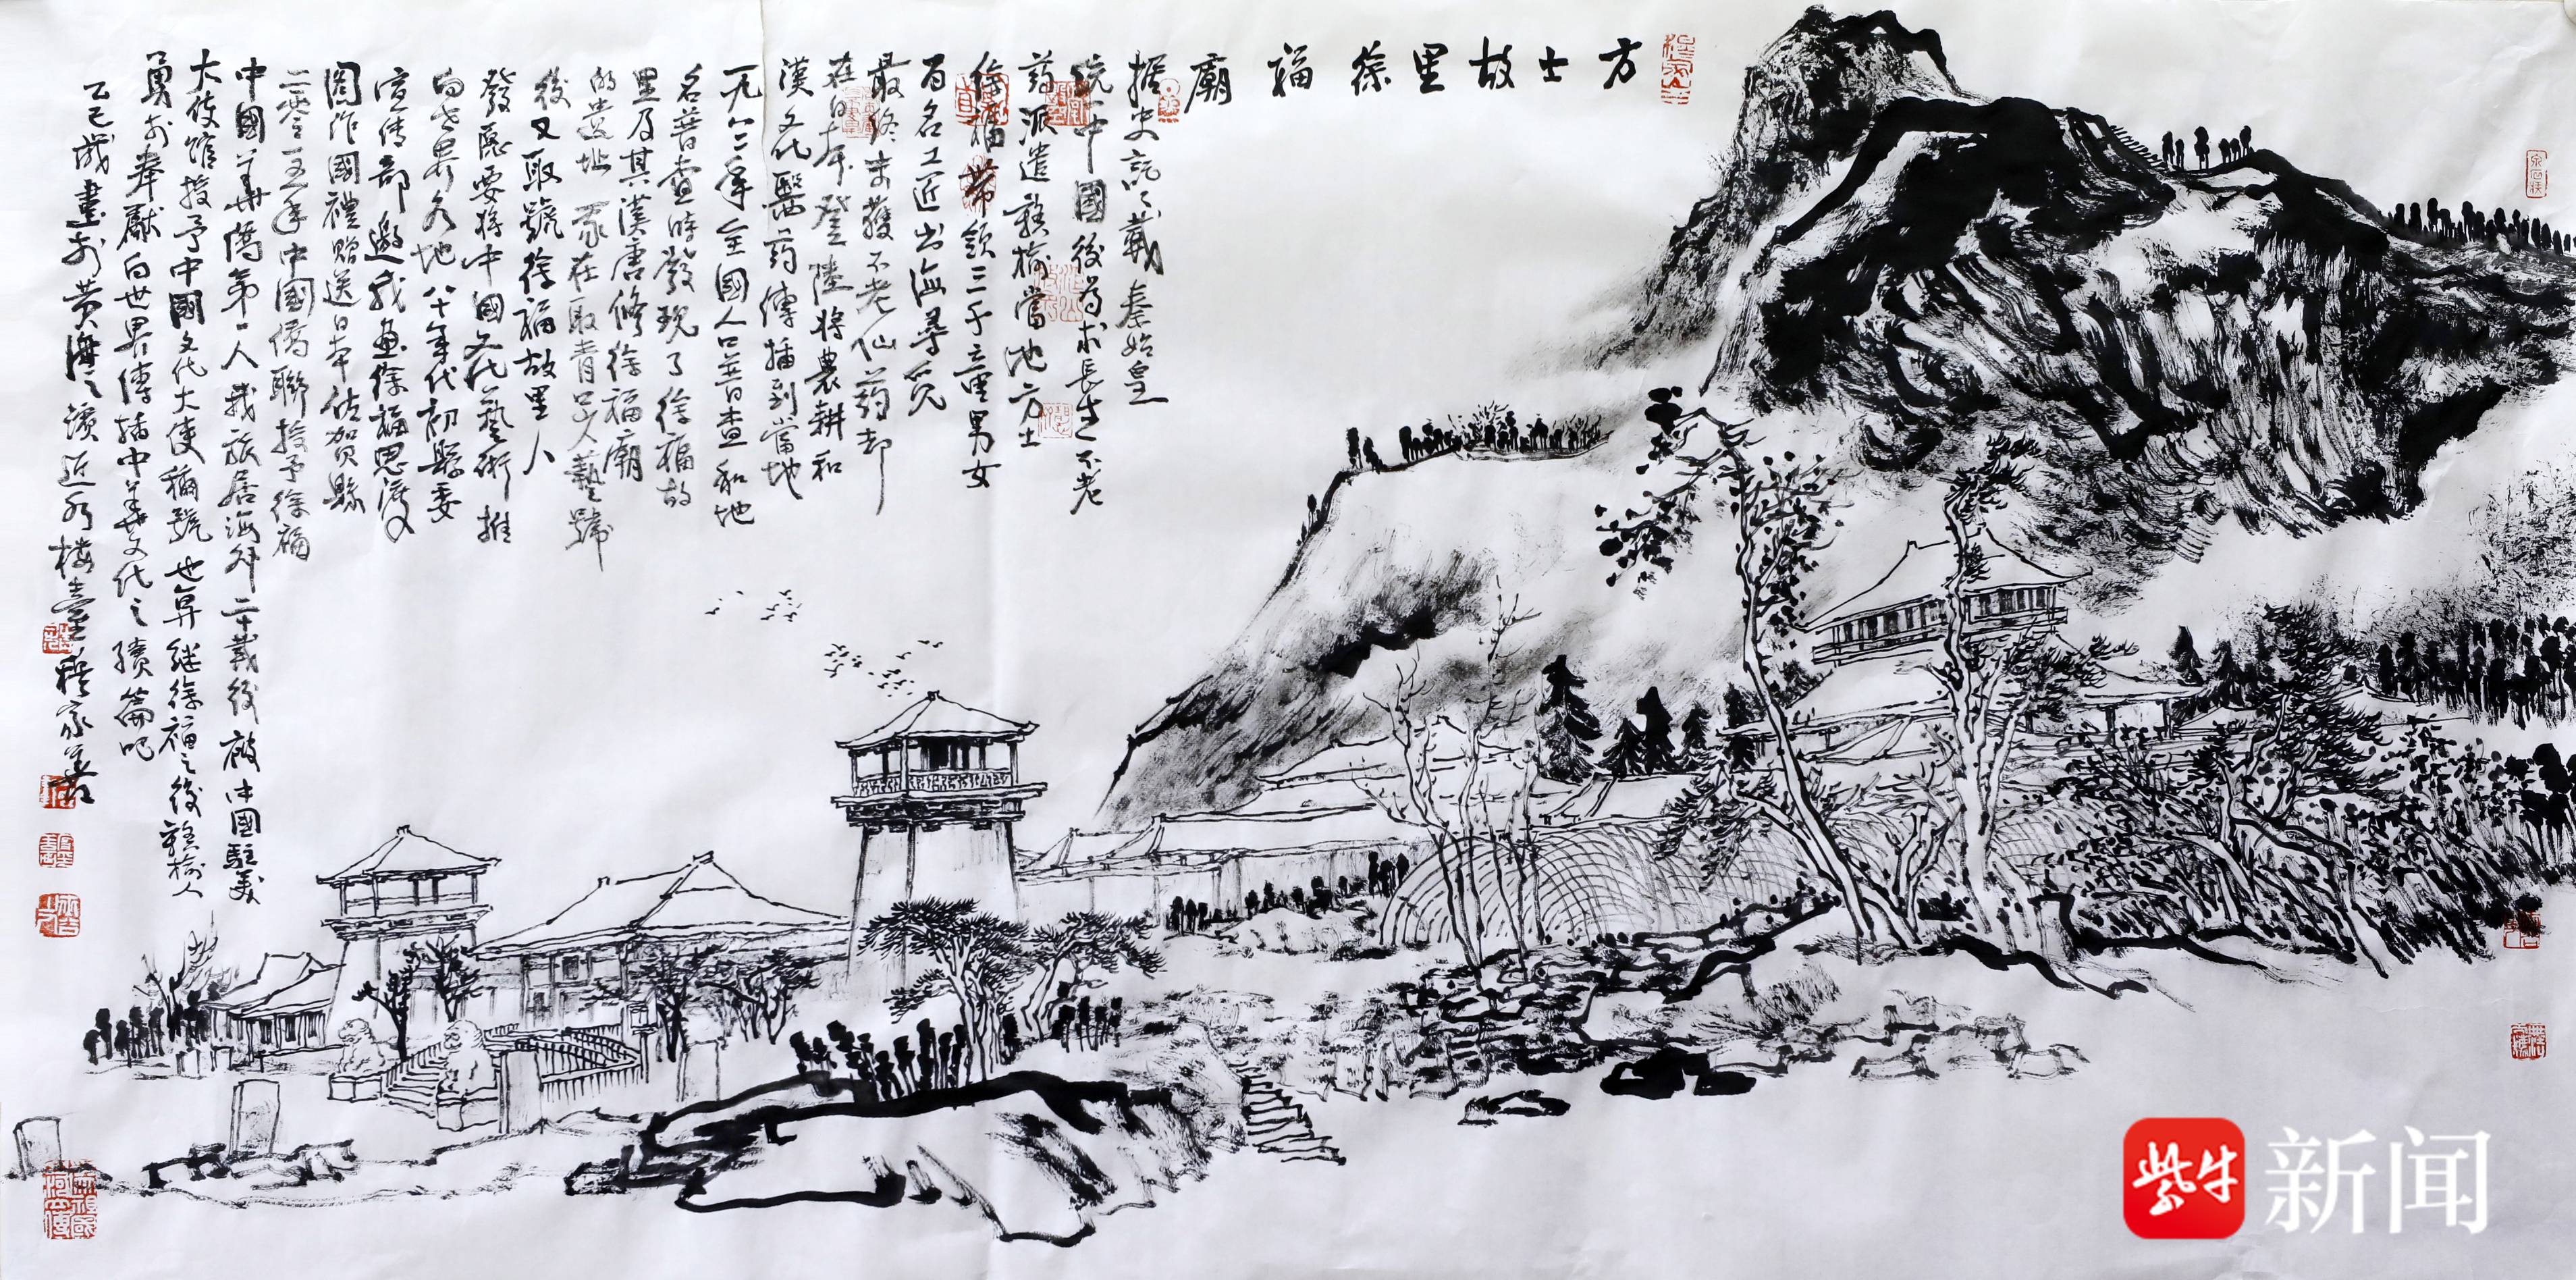 方士故里徐福廟
據史記記載秦始皇
統一中國後為求長生不老
药派遣贛榆當地方士
徐福帶領三千童男女
百名工匠出海尋覓
最终未獲不老仙药却
在日本登陸将農耕和
漢文化醫药傳播到當地
一九八二年全國人口普查和地
名普查時發現了徐福故
里及其漢唐修徐福廟
的遺址 家在取青口人藝號
後又取號徐福故里人
發愿要将中國文化藝術推
向世界各地八十年代初縣委
宣传部邀我画徐福思渡
图作國禮赠送日本佐加贺縣
二零一五年中國僑聯授予徐福
中國華僑第一人我旅居海外二十載後被中國駐美
大使馆授予中國文化大使稱號也算继徐福之後贛榆人
勇於奉獻向世界傳播中華文化之續篇吧
乙巳歲畫於黄海之濱近水楼臺程家善
紫牛新闻